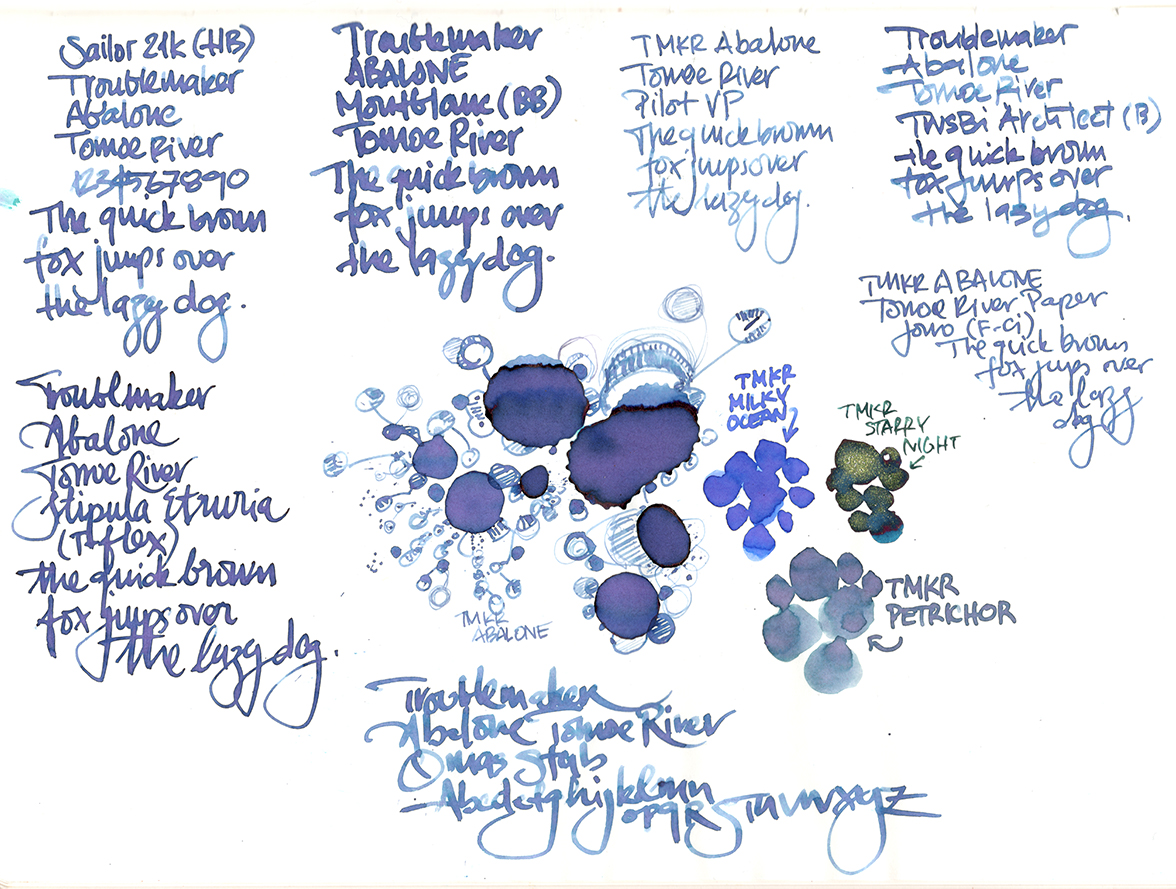 Sailor 21k (HB)
Troublemaker
Abalone
Tomoe River
1234567890
The quick brown
fox jumps over
the lazy dog.
Troublemaker
ABALONE
Montblanc (BB)
Tomoe River
The quick brown
fox jumps over
the lazy dog.
TMKR Abalone
Tomoe River
Pilot VP
The quick brown
fox jumps over
the lazy dog.
Troublemaker
Abalone
Tomoe River
TWSBi Architect (B)
the quick brown
fox jumps over
the lazy dog.
TMKR ABALONE
Tomoe River Paper
Jowo (F-Ci)
The quick brown
fox jumps over
the lazy
dog
Troublemaker
Abalone
Tomoe River
Stipula Etruria
(T-flex)
the quick brown
fox jumps over
the lazy dog.
TMKR
MILKY
OCEAN
TMKR
STARRY
NIGHT
TMKR
PETRICHOR
TMKR
ABALONE
Troublemaker
Abalone Tomoe River
Omas Stub
Abcdefghijklmn
opqRSTuvwxyz